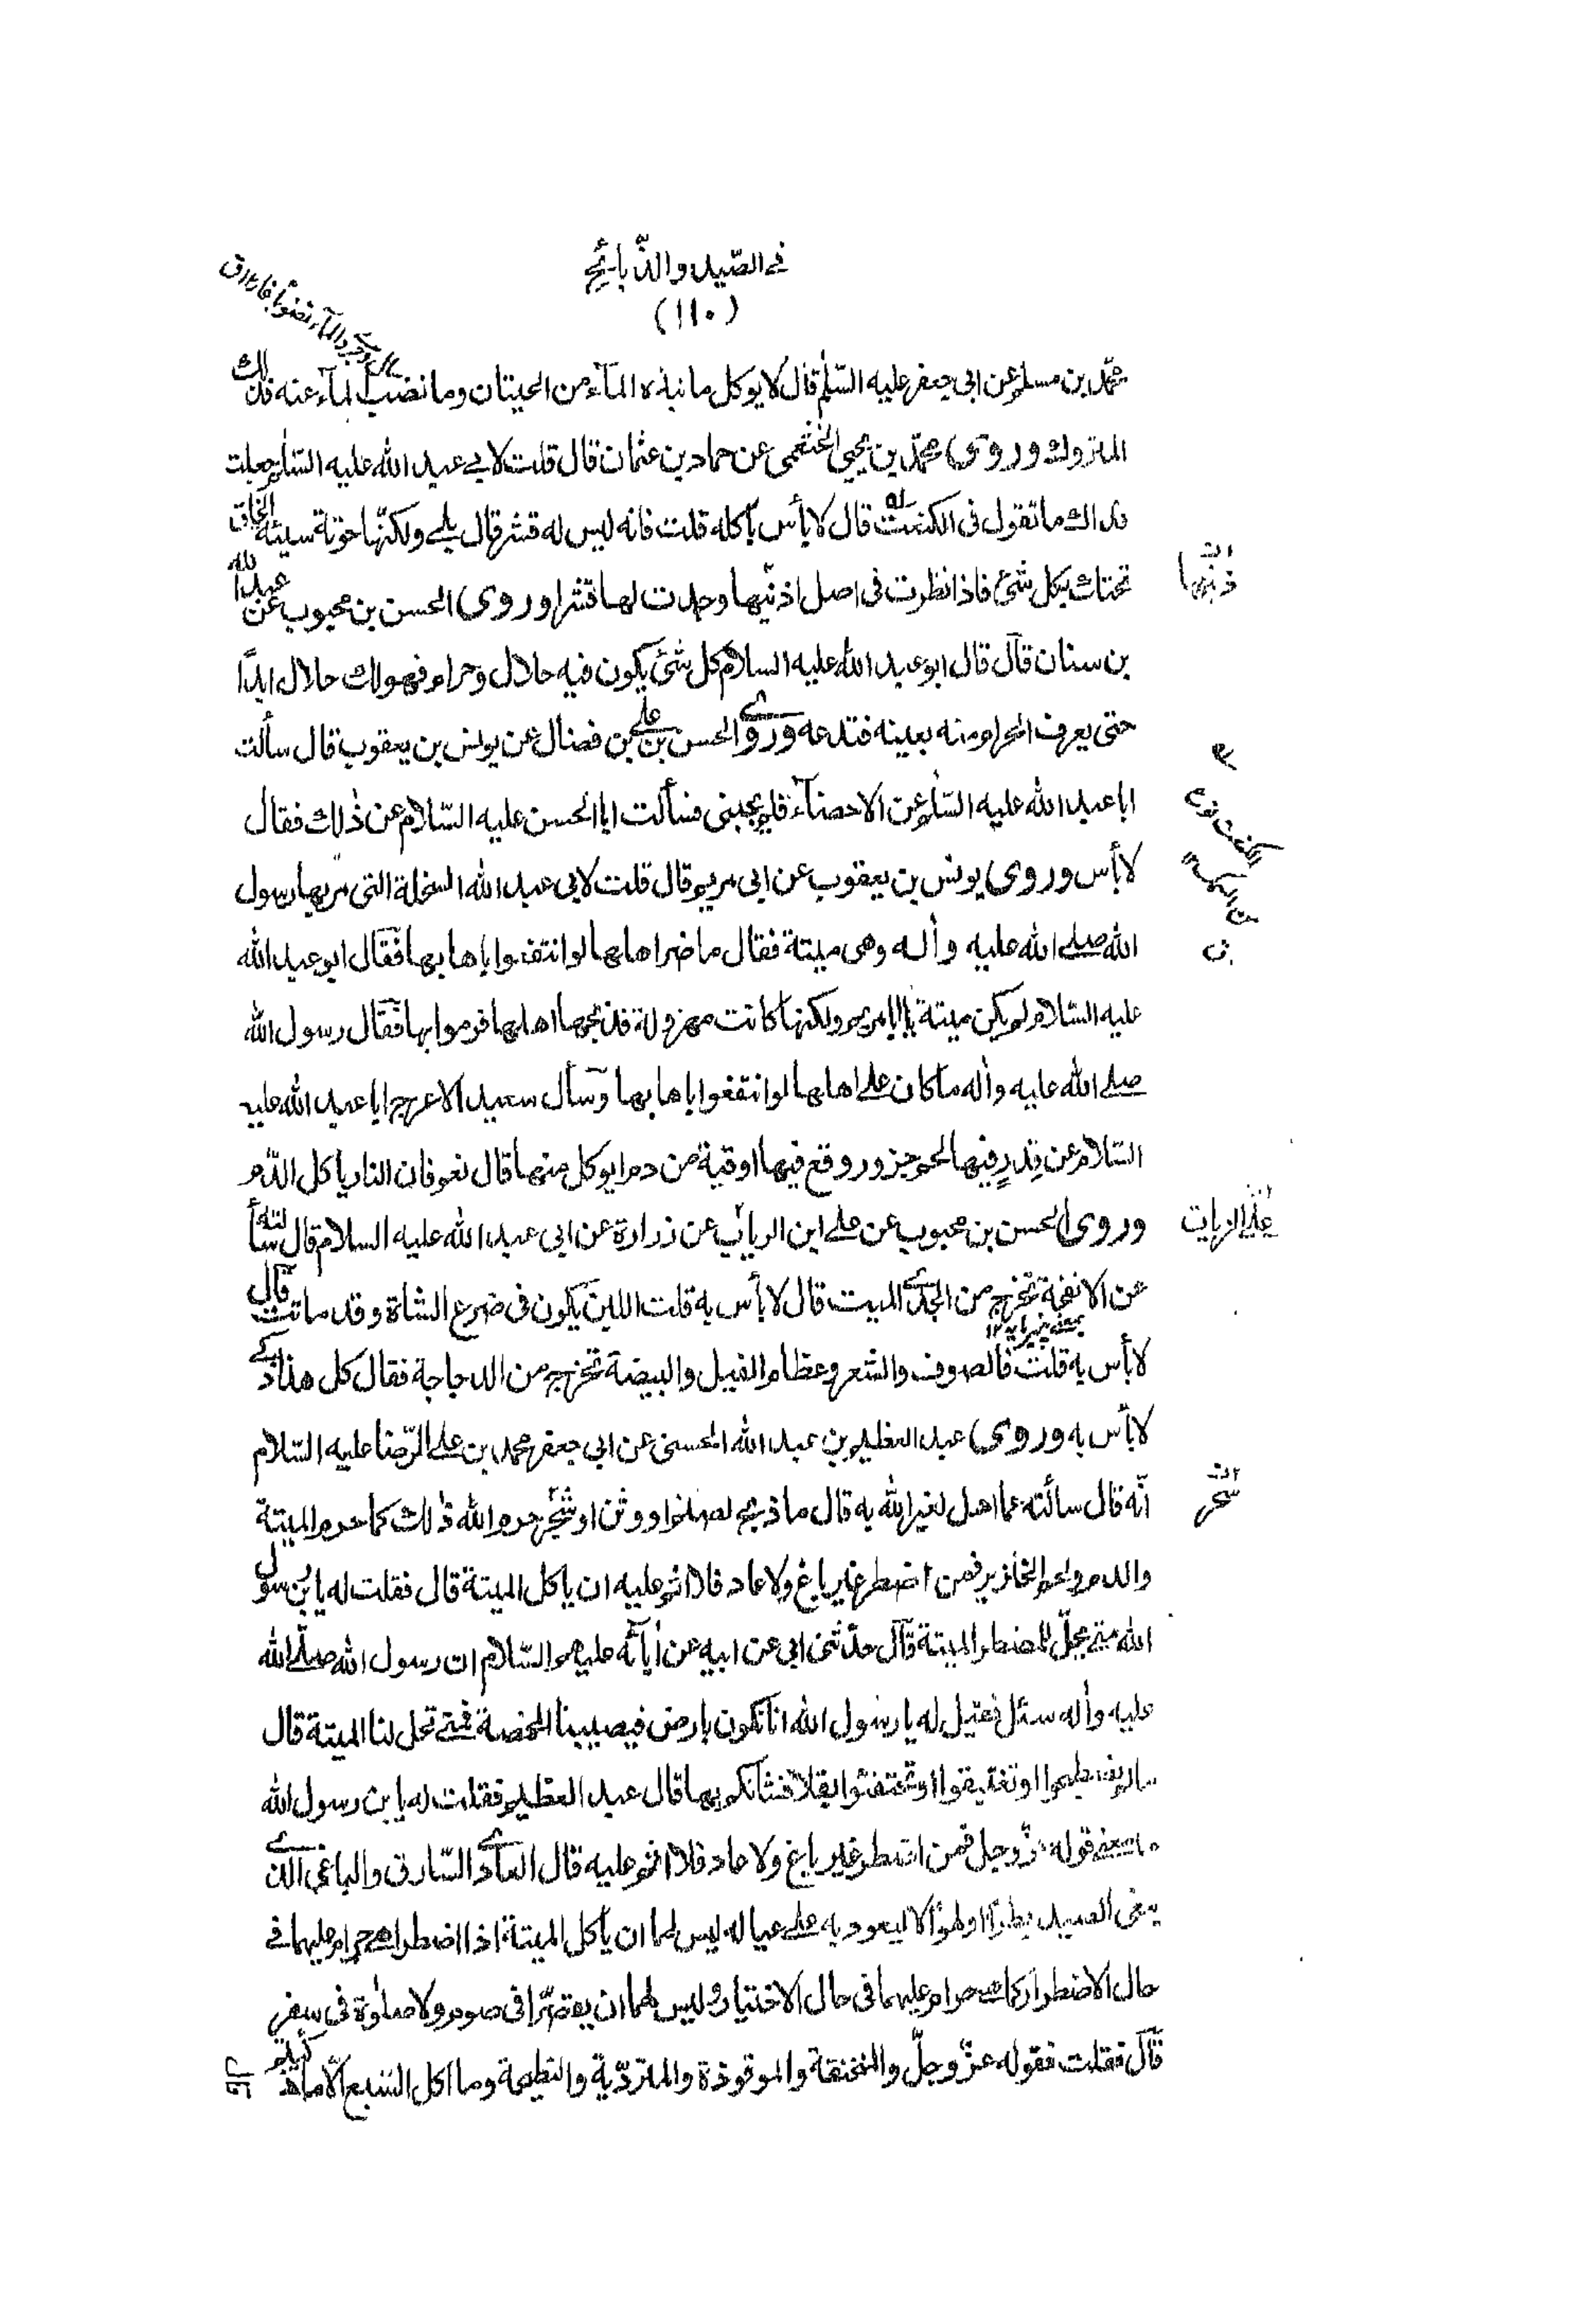 في الصّيد والذّبائح
(١١٠)
محمّد بن مسلم عن ابي جعفر عليه السّلم قال لا يوكل ما نبذه المآء من الحيتان وما نضب المآء عنه فذلك
المتروك وروى محمّد بن يحيى الخثعمى عن حماد بن عثمان قال قلت لابي عبد الله عليه السّلم جعلت
فداك ما تقول فى الكنعت قال لا بأس بأكله قلت فانه ليس له قشر قال بلى ولكنّها حوتة سيئة الخلق
تحتك بكل شئ فاذا نظرت فى اصل اذنيها وجدت لها قشرا وروى الحسن بن محبوب عن عبد الله
بن سنان قال قال ابو عبد الله عليه السلام كل شئ يكون فيه حلال وحرام فهو لك حلال ابدًا
حتى يعرف الحرام منه بعينه فتدعه وروى الحسن بن على بن فضال عن يونس بن يعقوب قال سألت
ابا عبد الله عليه السّلم عن الاخصآء فلم يجبنى فسألت ابا الحسن عليه السّلام عن ذلك فقال
لا بأس وروى يونس بن يعقوب عن ابي مريم قال قلت لابي عبد الله السخلة التى مرّ بها رسول
الله صلى الله عليه وآله وهى ميتة فقال ما ضر اهلها لو انتفعوا باهابها فقال ابو عبد الله
عليه السّلام لم يكن ميتة يا ابا مريم ولكنها كانت مهزولة فذبحها اهلها فرموا بها فقال رسول الله
صلى الله عليه وآله ما كان على اهلها لو انتفعوا باهابها وسأل سعيد الاعرج ابا عبد الله عليه
السّلام عن قِدرٍ فيها لحم جزور وقع فيها اوقية من دم ايوكل منها قال نعم فان النار يا كل الدّم
وروى الحسن بن محبوب عن على ابن الرياب عن زرارة عن ابي عبد الله عليه السلام قال سألته
عن الانفحة تخرج من الجدى الميت قال لا بأس به قلت اللبن يكون فى ضرع الشاة وقد ماتت قال
لا بأس به قلت فالصوف والشعر وعظام الفيل والبيضة تخرج من الدجاجة فقال كل هذا ذكى
لا بأس به وروى عبد العظيم بن عبد الله الحسنى عن ابي جعفر محمد بن على الرّضا عليه السّلام
انّه قال سألته عما اهل لغير الله به قال ما ذبح لصنم او وثن او شجر حرم الله ذلك كما حرم الميتة
والدم ولحم الخنزير فمن اضطر غير باغ ولا عاد فلا اثم عليه ان يا كل الميتة قال فقلت له يا بن رسول
الله متى يحلّ للمضطر الميتة قال حدّثنى ابي عن ابيه عن آبآئه عليهم السّلام ان رسول الله صلّى الله
عليه وآله سئل فقيل له يا رسول الله انا نكون بارض فيصيبنا المخمصة فمتى تحل لنا الميتة قال
ما لم تصطبحوا او تغتبقوا او تحتفئوا بقلا فشانكم بها قال عبد العظيم فقلت له يا بن رسول الله
ما معنى قوله عزّوجل فمن اضطر غير باغ ولا عاد فلا اثم عليه قال العادى السّارق والباغى الذى
يبغى الصيد بطرًا او لهوًا لا ليعود به على عياله ليس لهما ان يأكل الميتة اذا اضطرا هى حرام عليهما فى
حال الاضطرار كما هى حرام عليهما فى حال الاختيار وليس لهما ان يقصّرا فى صوم ولا صلوة فى سفر
قال فقلت فقوله عزّ وجلّ والمنخنقة والموقوذة والمتردّية والنطيحة وما اكل السّبع الّا ما ذكيتم
ذنبها
الكنعت
على الزيات
شجر
قال